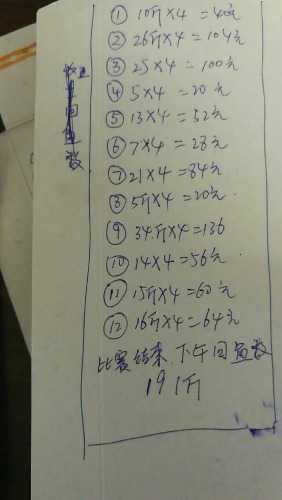 ① 10斤×4=40元
② 26斤×4=104元
③ 25×4=100元
④ 5×4=20元
⑤ 13×4=52元
⑥ 7×4=28元
⑦ 21×4=84元
⑧ 5斤×4=20元
⑨ 34斤×4=136
⑩ 14×4=56元
⑪ 15斤×4=60元
⑫ 16斤×4=64元
比赛结束.下午回鱼数
191斤
回鱼数